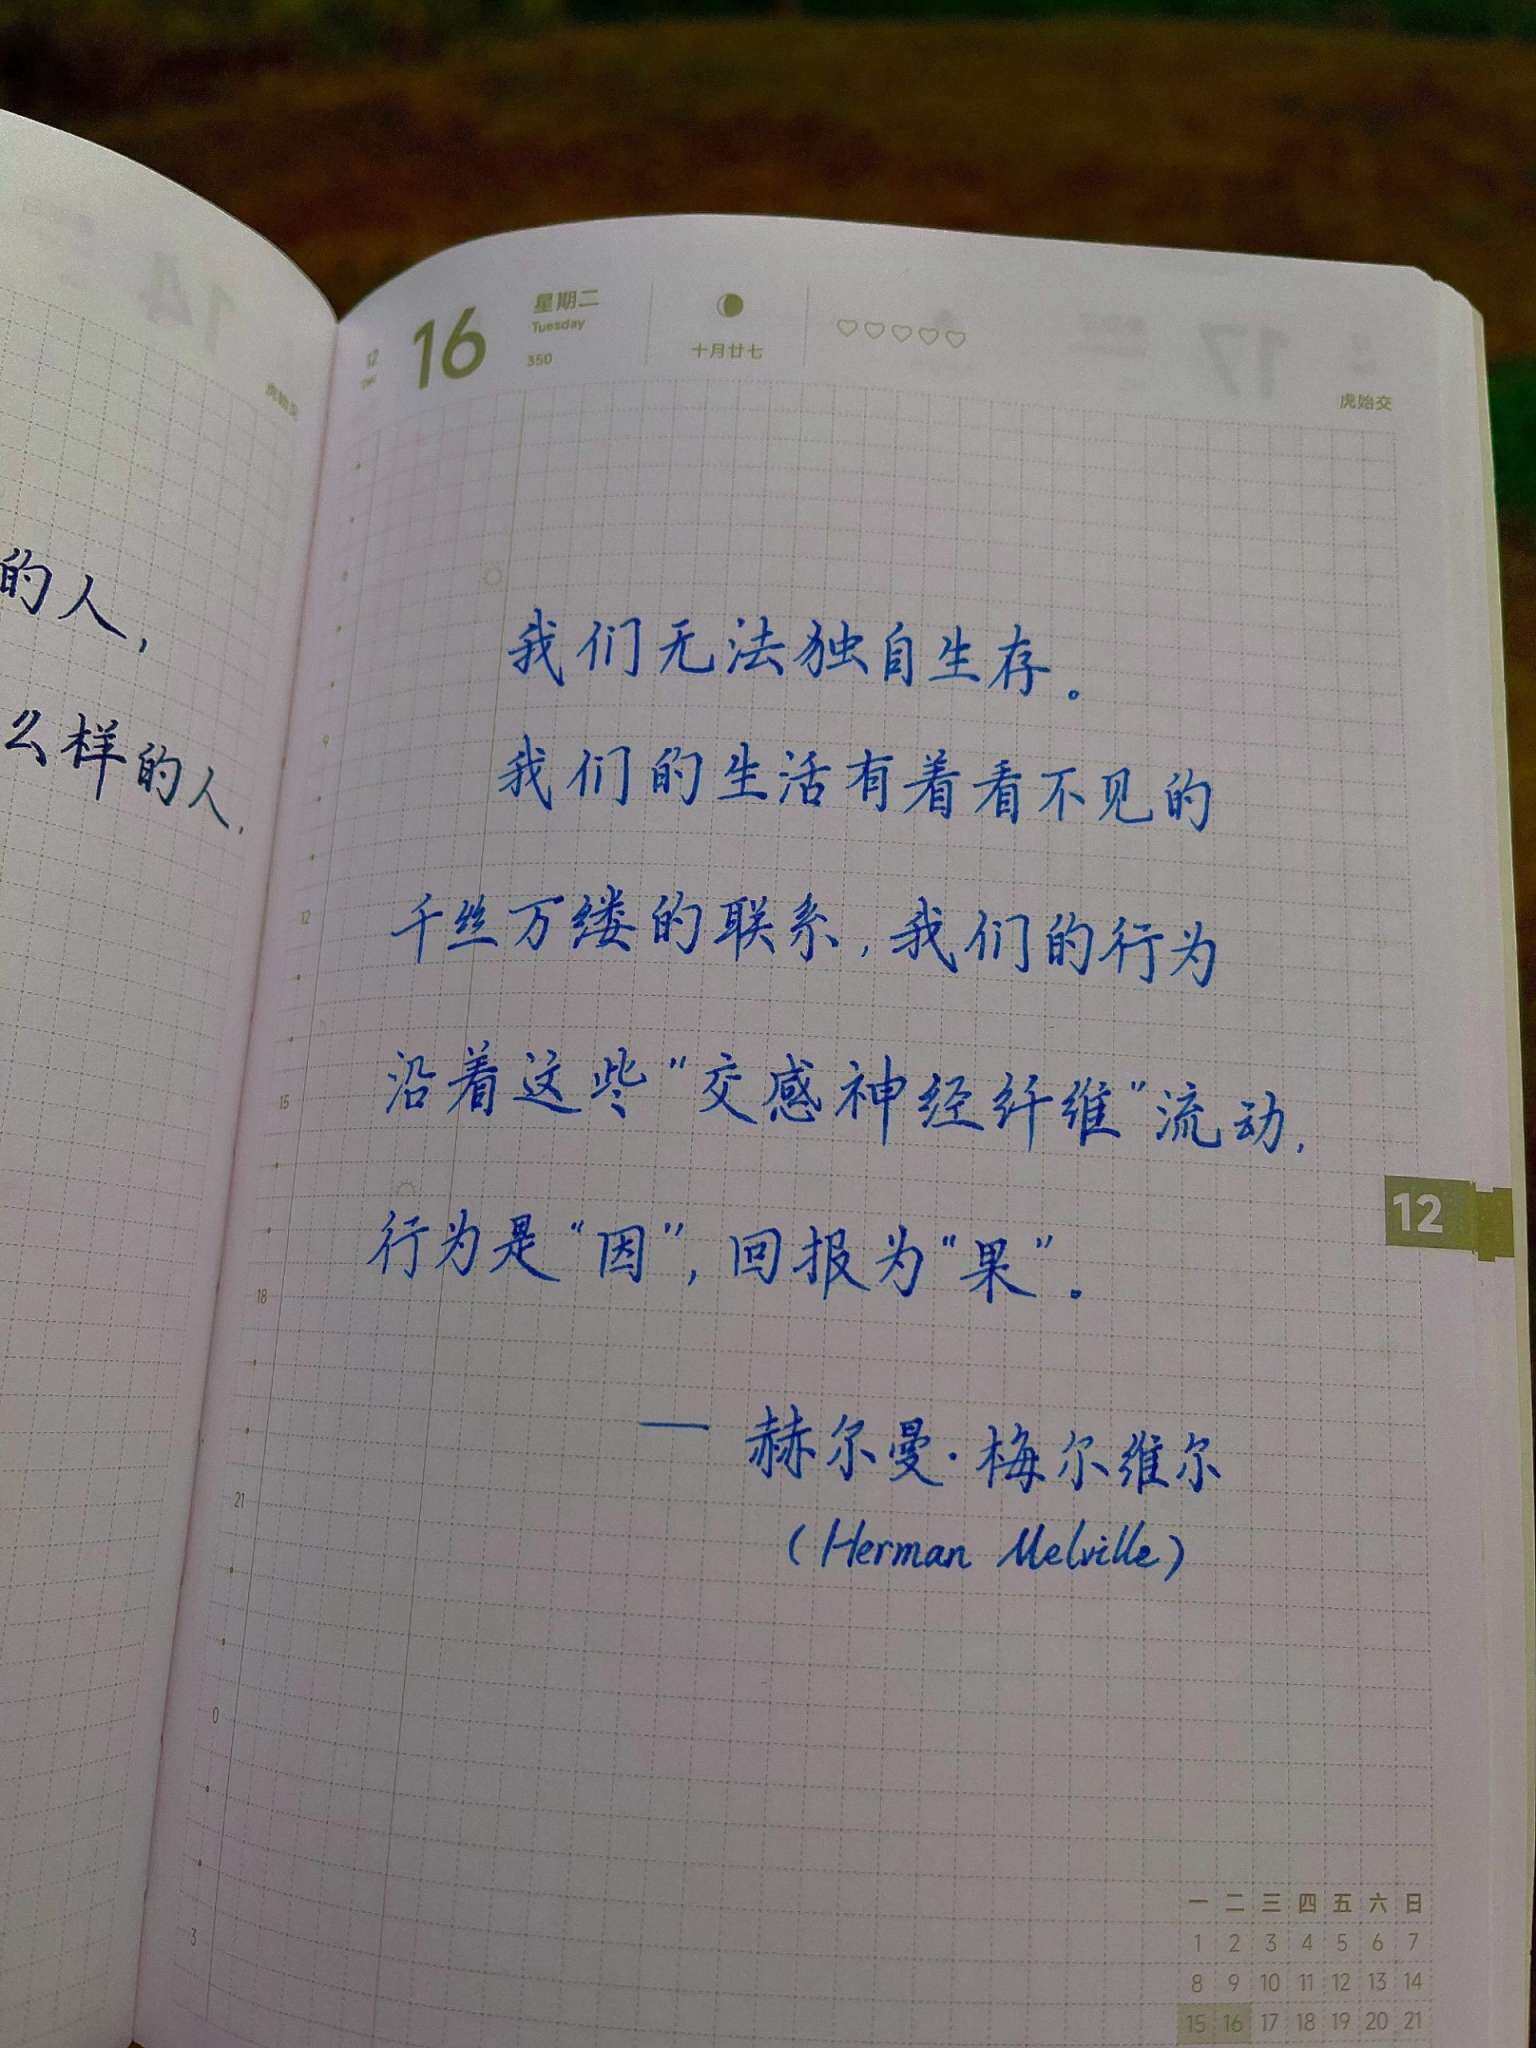 的人，
么样的人.
虎始交
12
Dec
16
星期二
Tuesday
350
十月廿七
虎始交
我们无法独自生存。
我们的生活有着看不见的
千丝万缕的联系，我们的行为
沿着这些“交感神经纤维”流动，
行为是“因”，回报为“果”。
— 赫尔曼·梅尔维尔
(Herman Melville)
9
12
15
18
21
0
3
12
一 二 三 四 五 六 日
1 2 3 4 5 6 7
8 9 10 11 12 13 14
15 16 17 18 19 20 21